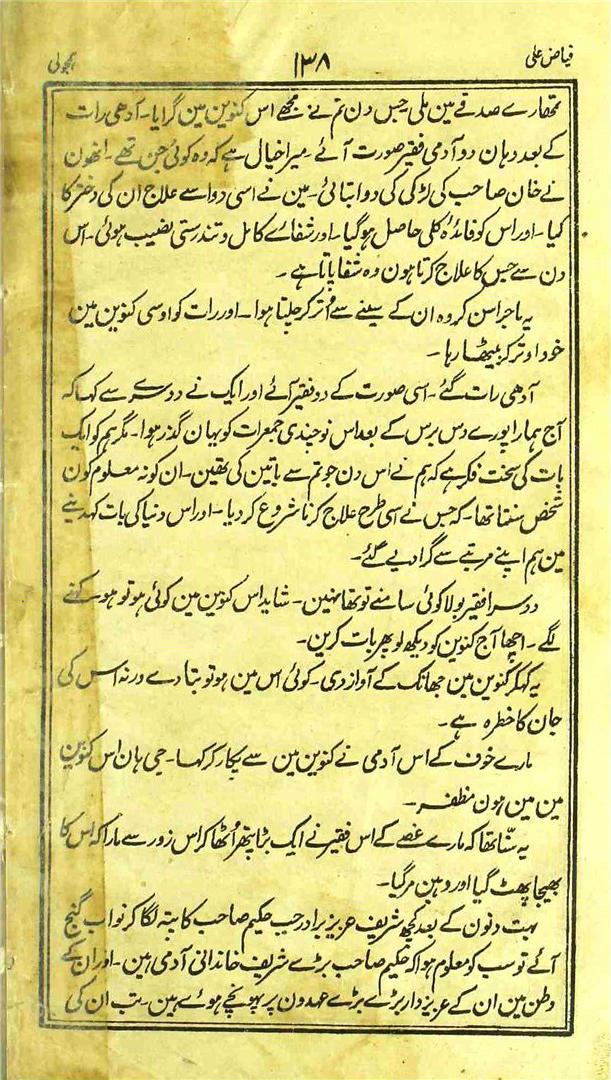 فیاض علی ۱۳۸ ہمجولی
تمھارے صدقے مین ملی جس دن تم نے مجھے اس کنوین مین گرایا۔ آدھی رات
کے بعد وہان دو آدمی فقیر صورت آئے۔ میرا خیال ہے کہ وہ کوئی جن تھے۔ انھون
نے خان صاحب کی لڑکی کی دوا بتائی۔ مین نے اسی دوا سے علاج ان کی دختر کا
کیا۔ اور اس کو فائدہ کلی حاصل ہو گیا۔ اور شفاے کامل و تندرستی نصیب ہوئی۔ اس
دن سے جس کا علاج کرتا ہون وہ شفا پاتا ہے۔
یہ ماجرا سن کر وہ ان کے سینے سے اُتر کر چلتا ہوا۔ اور رات کو اوسی کنوین مین
خود اوتر کر بیٹھا رہا۔
آدھی رات گئے۔ اسی صورت کے دو فقیر آئے اور ایک نے دوسرے سے کہا کہ
آج ہمارا پورے دس برس کے بعد اس نوچندی جمعرات کو یہان گذر ہوا۔ مگر ہم کو ایک
بات کی سخت فکر ہے کہ ہم نے اس دن جو تم سے باتین کی تھین۔ ان کو نہ معلوم کون
شخص سنتا تھا۔ کہ جس نے اسی طرح علاج کرنا شروع کر دیا۔ اور اس دنیا کی بات کہدینے
مین ہم اپنے مرتبے سے گرا دیے گئے۔
دوسرا فقیر بولا کوئی سامنے تو تھا نہین۔ شاید اس کنوین مین کوئی ہو تو ہو۔ کہنے
لگے۔ اچھا آج کنوین کو دیکھ لو پھر بات کرین۔
یہ کہکر کنوین مین جھانک کے آواز دی۔ کوئی اس مین ہو تو بتا دے ورنہ اس کی
جان کا خطرہ ہے۔
مارے خوف کے اس آدمی نے کنوین مین سے پکار کر کہا۔ جی ہان اس کنوین
مین مین ہون مظفر۔
یہ سنّا تھا کہ مارے غصے کے اس فقیر نے ایک بڑا پتھر اُٹھا کر اس زور سے مارا کہ اس کا
بھیجا پھٹ گیا اور وہین مر گیا۔
بہت دنون کے بعد کچھ شریف عزیز برادر جب حکیم صاحب کا پتہ لگا کر نواب گنج
آئے تو سب کو معلوم ہوا کہ حکیم صاحب بڑے شریف خاندانی آدمی ہین۔ اور ان کے
وطن مین ان کے عزیز دار بڑے بڑے عہدون پر پہونچے ہوئے ہین۔ تب ان کی